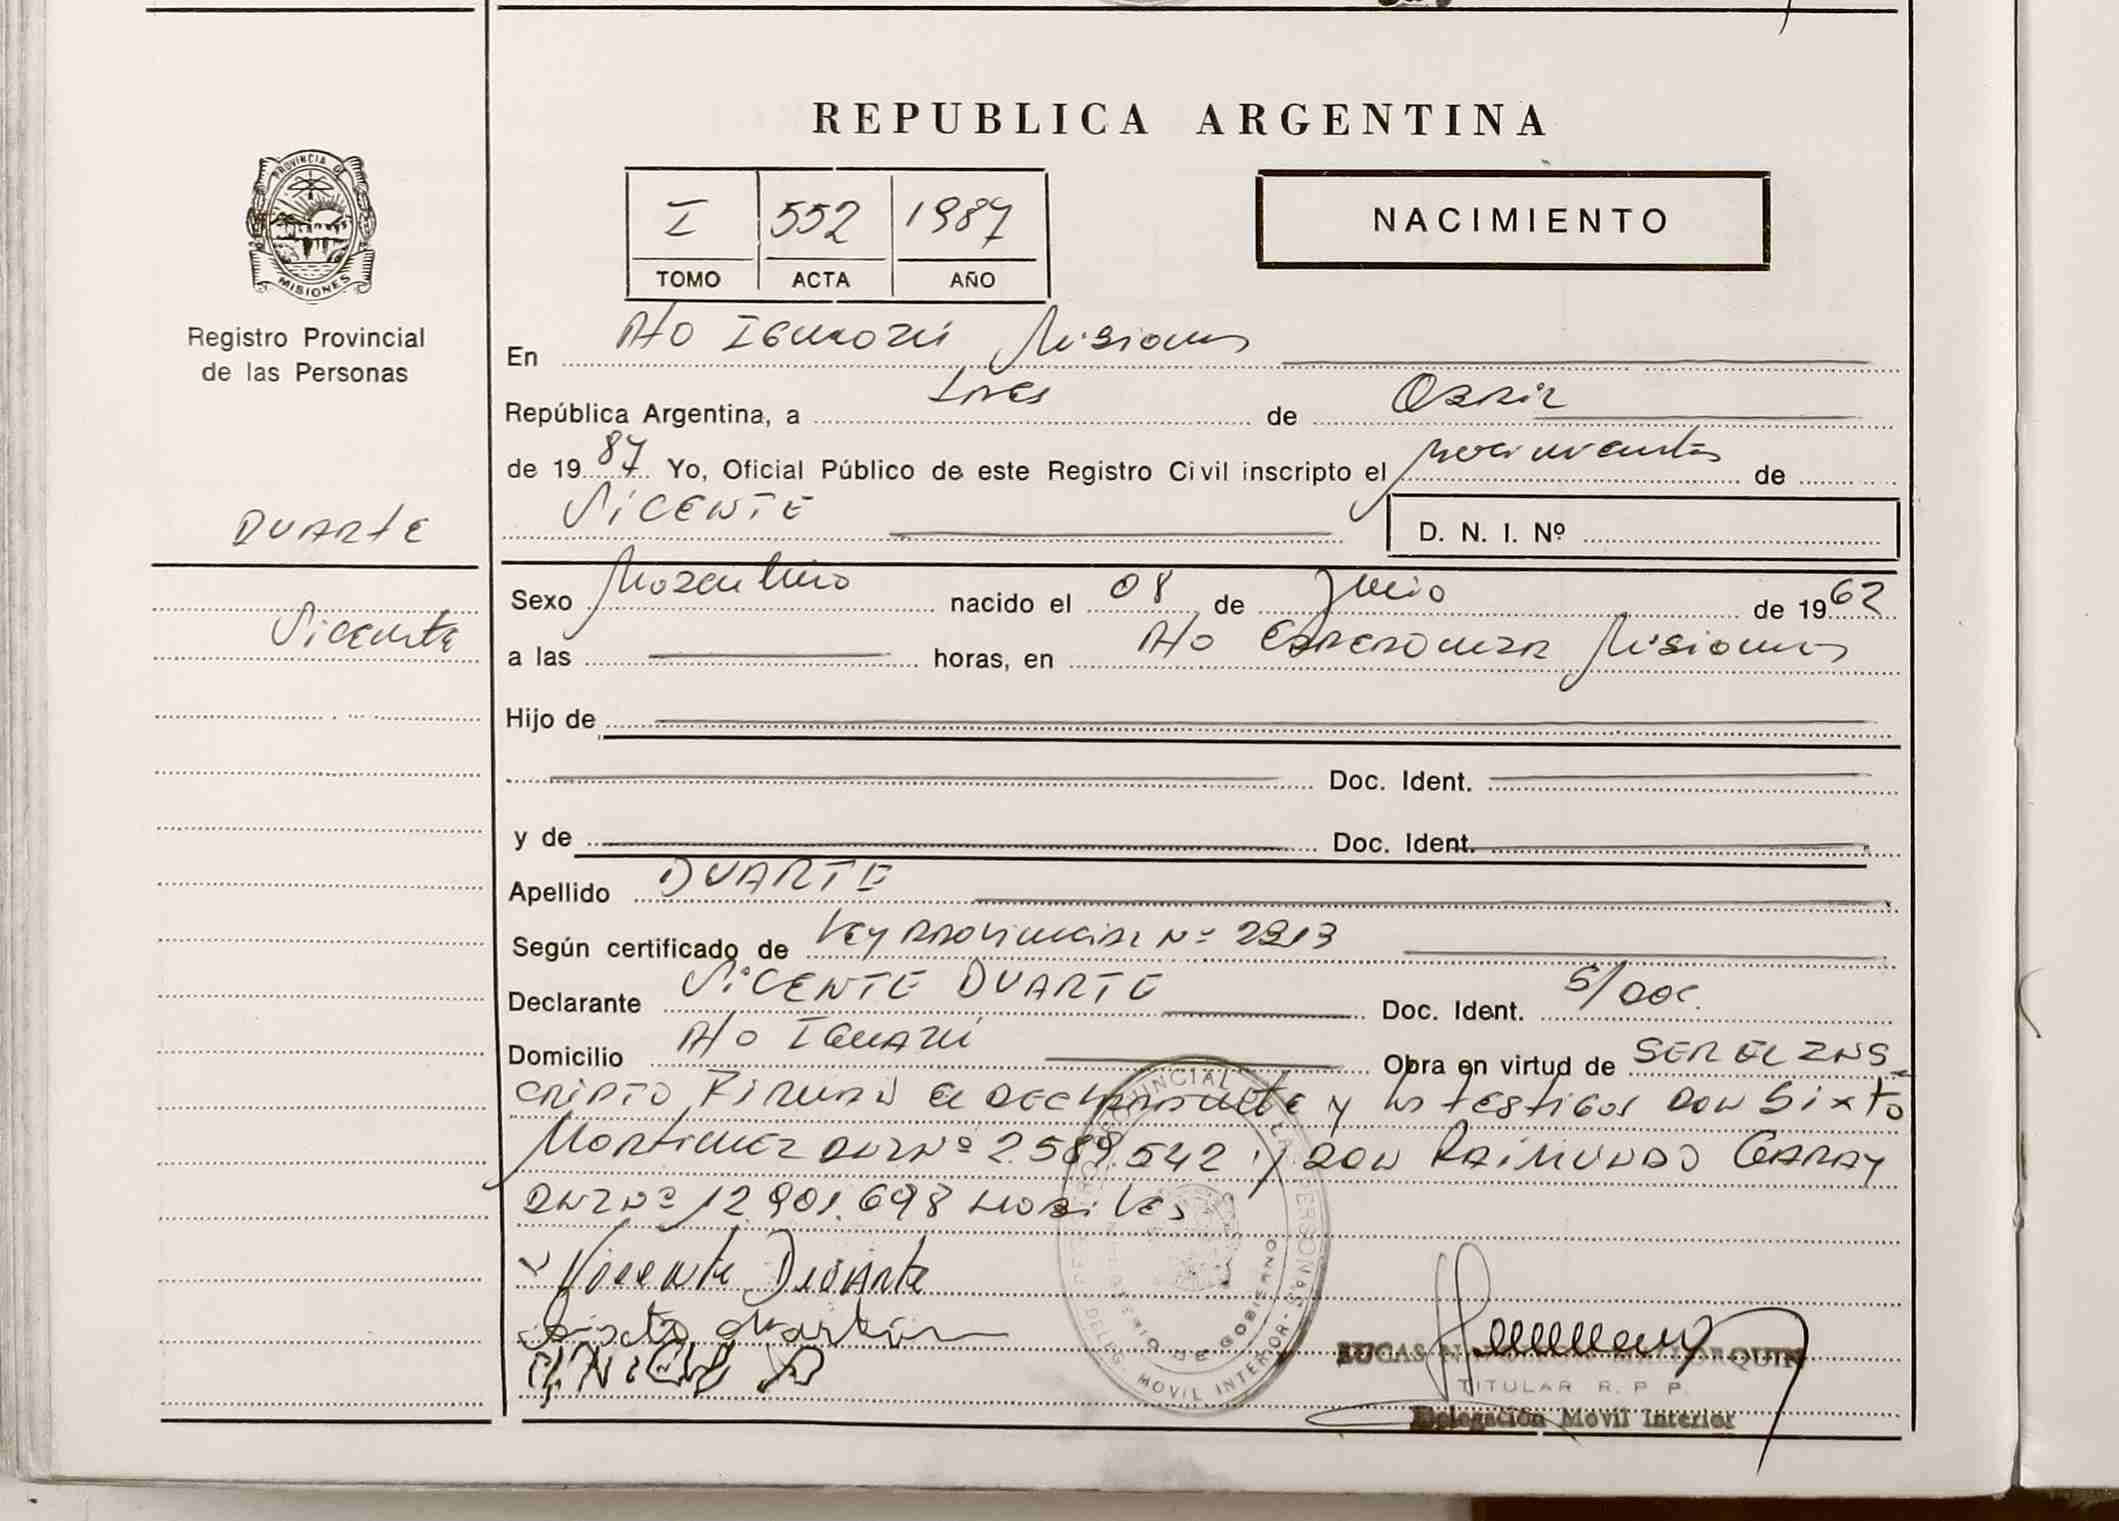 REPUBLICA ARGENTINA
PROVINCIA DE MISIONES
I 552 1987
TOMO ACTA AÑO
NACIMIENTO
Registro Provincial
de las Personas
En Pto Iguazú Misiones
República Argentina, a tres de Abril
de 1987 Yo, Oficial Público de este Registro Civil inscripto el nacimiento de
VICENTE
D. N. I. Nº
DUARTE
Vicente
Sexo Masculino nacido el 08 de Julio de 1962
a las horas, en Pto Esperanza Misiones
Hijo de
Doc. Ident.
y de Doc. Ident.
Apellido DUARTE
Según certificado de Ley Provincial Nº 2213
Declarante VICENTE DUARTE Doc. Ident. S/Doc.
Domicilio Pto IGUAZÚ Obra en virtud de SER EL INS-
CRIPTO, Firman el declarante y los testigos Don Sixto
Martinez DNI Nº 2.589.542 y Don RAIMUNDO GARAY
DNI Nº 12.901.698 habiles
Vicente Duarte
Sixto
LUCAS N
TITULAR R. P. P.
Delegación Movil Interior
PROVINCIAL DE LAS PERSONAS
DELEG. MOVIL INTERIOR
MINISTERIO DE GOBIERNO